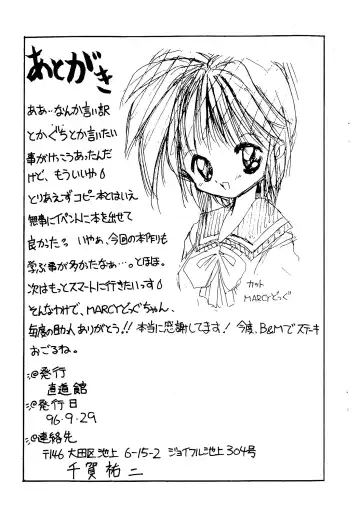 あとがき
ああ…なんか言い訳
とかぐちとか言いたい
事がけっこうあったんだ
けど、もういいや
とりあえずコピー本とはいえ
無事にイベントに本を出せて
良かった。いやぁ、今回の本作りも
学ぶ事が多かたなぁ…。とほほ。
次はもっとスマートに行きたいっす
そんなわけで、MARCYどっぐちゃん、
毎度の助人ありがとう!!本当に感謝してます!今度、B&Mでステーキ
おごるね。
カット
MARCYどっぐ
:@発行
直道館
:@発行日
96.9.29
:@連絡先
〒146 大田区池上 6-15-2 ジョイフル池上 304号
千賀祐二